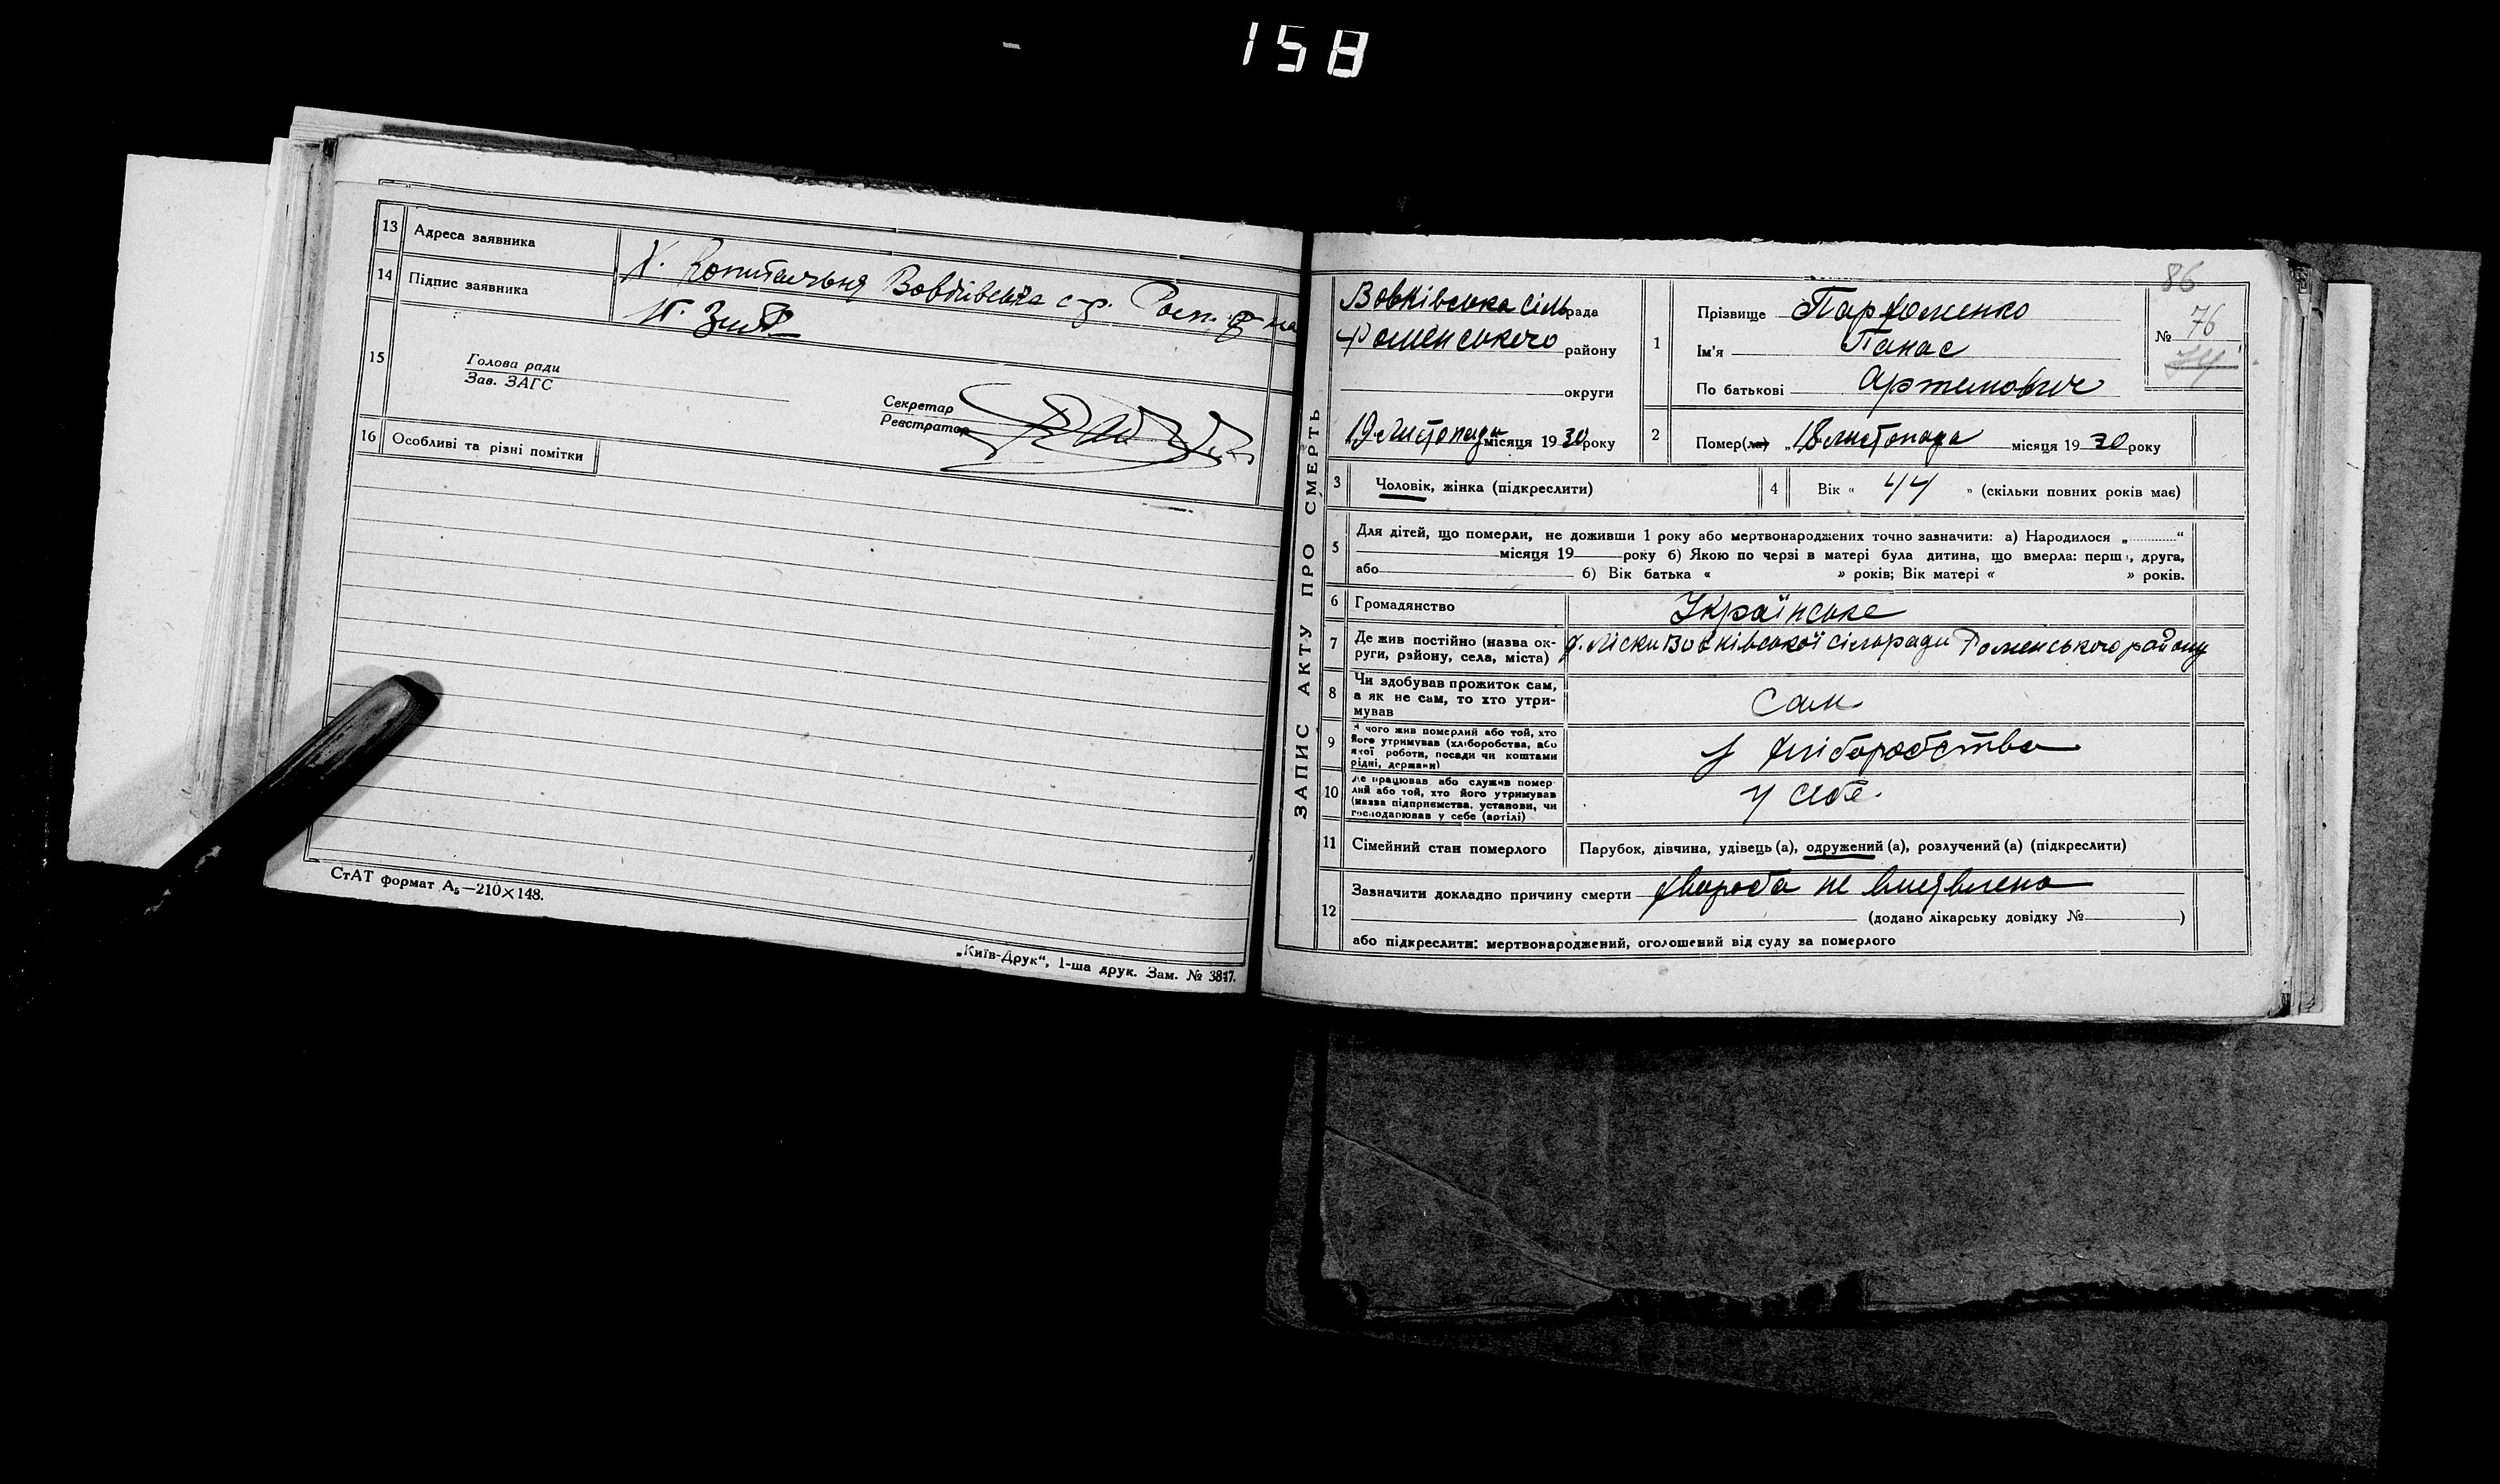 158
13 Адреса заявника Х. Копитальня Вовківська с.р. Ром. р-на
14 Підпис заявника
15 Голова ради
Зав. ЗАГС
Секретар
Реєстратор
16 Особливі та різні помітки
СтАТ формат А₅—210×148.
„Київ-Друк“, 1-ша друк. Зам. № 3847.
ЗАПИС АКТУ ПРО СМЕРТЬ
86
Вовківська сільрада
Роменського району
округи
19 листопада місяця 1930 року
1 Прізвище Пархоменко
Ім'я Панас
По батькові Артемович
№ 76
74
2 Помер(ла) „18 листопада місяця 1930 року
3 Чоловік, жінка (підкреслити)
4 Вік « 44 » (скільки повних років має)
5 Для дітей, що померли, не доживши 1 року або мертвонароджених точно зазначити: а) Народилося „..........“
місяця 19 року б) Якою по черзі в матері була дитина, що вмерла: перш , друга,
або б) Вік батька « » років; Вік матері « » років.
6 Громадянство Українське
7 Де жив постійно (назва ок-
руги, району, села, міста) х. Ліски Вовківської сільради Роменського району
8 Чи здобував прожиток сам,
а як не сам, то хто утри-
мував сам
9 З чого жив померлий або той, хто
його утримував (хліборобства, або
якої роботи, посади чи коштами
рідні, держави) з хліборобства
10 Де працював або служив помер
лий або той, хто його утримував
(назва підприємства, установи, чи
господарював у себе (артілі) у себе.
11 Сімейний стан померлого Парубок, дівчина, удівець (а), одружений (а), розлучений (а) (підкреслити)
12 Зазначити докладно причину смерти хвороба не виявлена
(додано лікарську довідку № )
або підкреслити: мертвонароджений, оголошений від суду за померлого